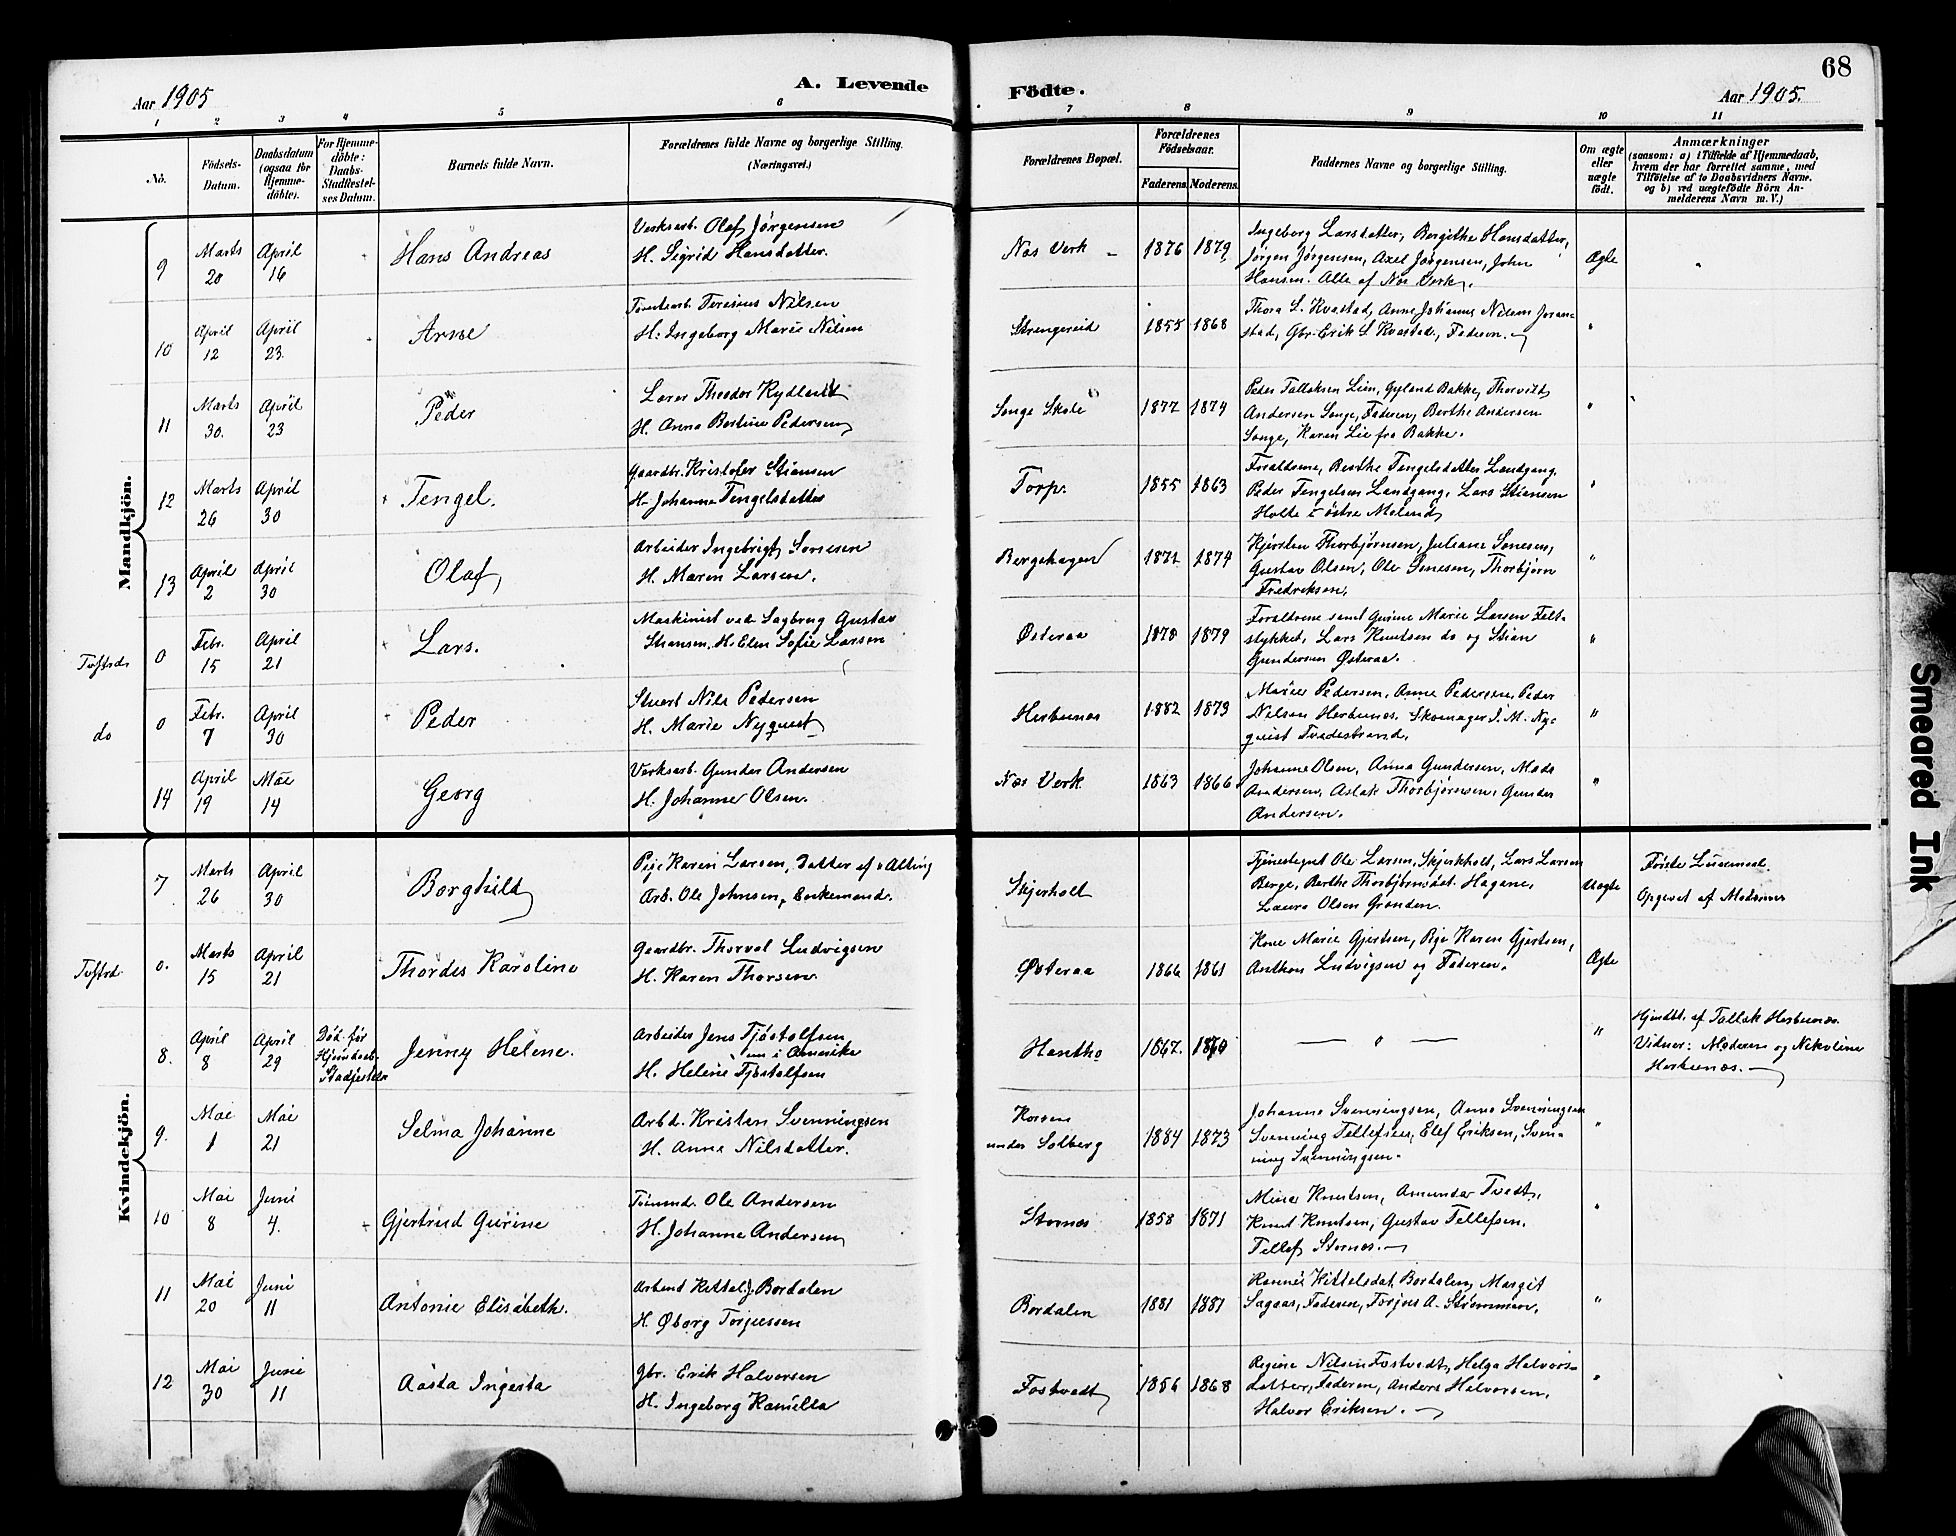 68
Aar 1905
A. Levende
Födte.
Aar 1905.
1 2 3 4 5 6 7 8 9 10 11
No.
Födsels-
Datum.
Daabsdatum
(ogsaa for
Hjemme-
döbte).
For Hjemme-
döbte:
Daabs-
Stadfæstel-
ses Datum.
Barnets fulde Navn.
Forældrenes fulde Navne og borgerlige Stilling.
(Næringsvei.)
Forældrenes Bopæl.
Forældrenes
Födselsaar.
Faderens. Moderens.
Faddernes Navne og borgerlige Stilling.
Om ægte
eller
uægte
födt.
Anmærkninger
(saasom: a) i Tilfælde af Hjemmedaab,
hvem der har forrettet samme, med
Tilföielse af to Daabsvidners Navne.
og b) ved uægtefödte Börn An-
melderens Navn m. V.)
Mandkjön.
9
Marts
20
April
16
Hans Andreas
Verksarb. Olaf Jørgensen
H. Sigrid Hansdatter.
Næs Verk
1876 1879
Ingeborg Larsdatter, Bergithe Hansdatter,
Jørgen Jørgensen, Axel Jørgensen, John
Hansen. Alle af Næs Verk.
Ægte
10
April
12
April
23.
Arne
Nilsen
H. Ingeborg Marie Nilsen
Strengereid
1855 1868
Thora L. Kvastad, Anne Johanne Nilsen
stad, Gbr. Erik L. Kvastad, Faderen.
"
11
Marts
30.
April
23
Peder
Lærer Theodor
H. Anna Bertine Pedersen
Songe Skole
1872 1874
Peder Tallaksen Lien, Gyland Bakke, Thorvild
Andersen Songe, Faderen, Berthe Andersen
Songe, Karen Lie fra Bakke.
"
12
Marts
26
April
30
Tengel.
Gaardbr. Kristofer Stiansen
H. Johanne Tengelsdatter
Torp.
1855 1863
Forældrene, Berthe Tengelsdatter Landgang,
Peder Tengelsen Landgang, Lars Stiansen
Holte i østre Moland
"
13
April
2
April
30
Olaf
Arbeider Ingebrigt Sonesen
H. Maren Larsen.
Bergehagen
1872 1874
Kjersten Thorbjørnsen, Juliane Sonesen,
Gustav Olsen, Ole Sonesen, Thorbjørn
Fredriksen.
"
0
Febr.
15
April
21
Lars.
Maskinist ved Sagbrug Gustav
Stiansen, H. Elen Sofie Larsen
Østeraa
1878 1879
Forældrene samt Gurine Marie Larsen Felt-
stykket, Lars Knutsen do og Stian
Gundersen Østeraa.
"
do
0
Febr.
7
April
30
Peder
Stuert Nils Pedersen
H. Marie Nyquist
Herbunæs
1882 1873
Marie Pedersen, Anne Pedersen, Peder
Nilsen Herbunæs. Skomager J. M. Ny-
quist Tvedestrand.
"
14
April
19
Mai
14
Georg
Verksarb. Gunder Andersen
H. Johanne Olsen.
Næs Verk
1863 1866
Johanne Olsen, Anna Gundersen, Mads
Andersen, Aslak Thorbjørnsen, Gunder
Andersen.
"
Kvindekjön.
7
Marts
26
April
30
Borghild
Pige Karen Larsen, Datter af
Arb. Ole Johnsen,
Skjerholt
Tjenestegut Ole Larsen, Skjerkholt, Lars Larsen
Berge, Berthe Hagane,
Laura Olsen Grønden.
Uægte
Første Leiermaal.
Opgivet af Moderen
0.
Marts
15
April
21
Thordis Karoline
Gaardbr. Thorval Ludvigsen
H. Karen Thorsen.
Østeraa
1866 1861
Kone Marie Gjertsen, Pige Karen Gjertsen,
Anthon Ludvigsen og Faderen.
Ægte
8.
April
8
April
29
Død før
Stadfæstelse
Jenny Helene.
Arbeider Jens Tjøstolfsen
nu i Amerika
H. Helene Tjøstolfsen
Hantho
1867. 1870
— " —
"
Hjmdbt. af Tallak Herbunæs.
Vidner: Moderen og Nikoline
Herbunæs.
9.
Mai
1
Mai
21
Selma Johanne
Arbd. Kristen Svenningsen
H. Anne Nilsdatter.
under Solberg
1884 1873
Johanne Svenningsen, Anne Svenningsen
Svenning Tellefsen, Elef Eriksen, Sven-
ning Svenningsen.
"
10
Mai
8
Juni
4.
Gjertrud Gurine
Tømmd. Ole Andersen
H. Johanne Andersen
Stornæs
1858 1871
Mina Knutsen, Amunda Tvedt,
Knut Knutsen, Gustav Tellefsen,
Tellef Stornæs.
"
11
Mai
20
Juni
11
Antonie Elisabeth.
Kittel J. Bordalen
H. Øborg Torjussen
Bordalen
1881 1881
Kittelsdat. Bordalen, Margit
Sagaas, Faderen, Torjus A. Strømmen.
"
12
Mai
30
Juni
11
Aasta Ingesta
Gbr. Erik Halvorsen
H. Ingeborg Kamilla
Fostvedt
1856 1868
Regine Nilsen Fostvedt, Helga Halvors-
datter, Faderen, Anders Halvorsen,
Halvor Eriksen.
"
Smeared Ink